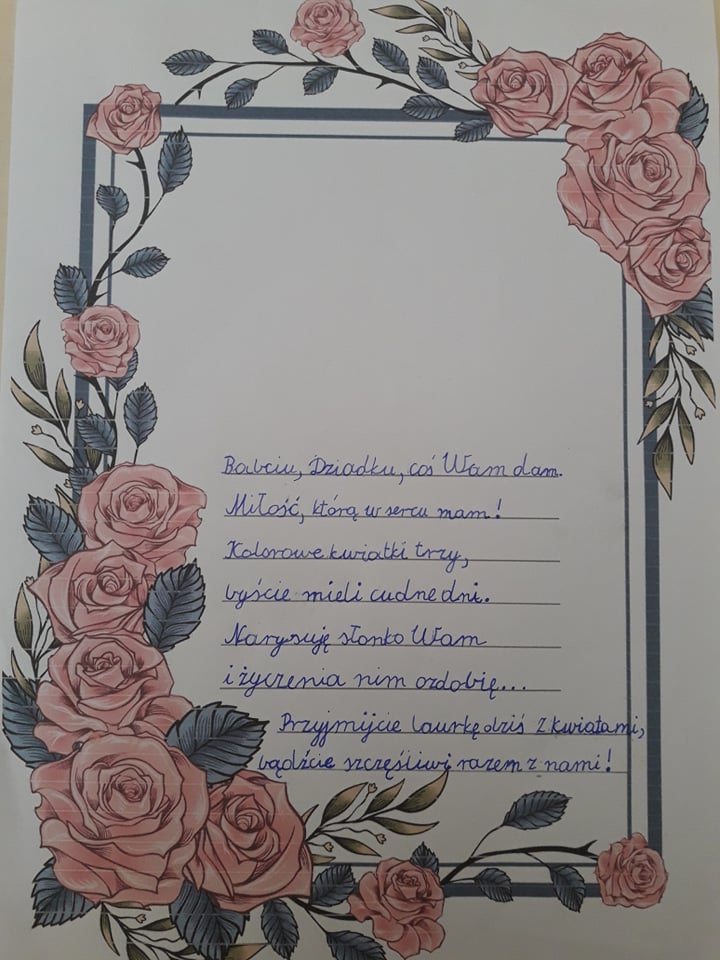 Babciu, Dziadku, coś Wam dam.
Miłość, którą w sercu mam!
Kolorowe kwiatki trzy,
byście mieli cudne dni.
Narysuję słonko Wam
i życzenia nim ozdobię...
Przyjmijcie laurkę dziś z kwiatami,
bądźcie szczęśliwi razem z nami!